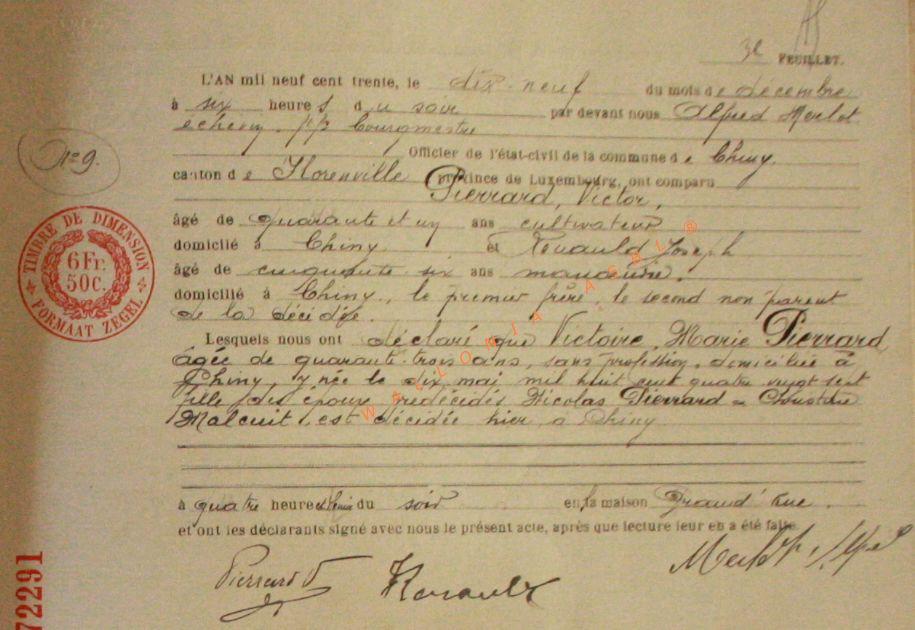 3e FEUILLET.
L'AN mil neuf cent trente, le dix-neuf du mois de décembre
à six heures du soir par devant nous Alfred Merlot
echevin, ff Bourgmestre
Officier de l'état-civil de la commune de Chiny.
N° 9.
canton de Florenville province de Luxembourg, ont comparu
Pierrard, Victor,
âgé de quarante et un ans cultivateur
domicilié à Chiny. et Renauld Joseph
âgé de cinquante six ans manœuvre.
domicilié à Chiny, le premier frère, le second non parent
de la décédée.
Lesquels nous ont déclaré que Victoire, Marie Pierrard
âgée de quarante-trois ans, sans profession, domiciliée à
Chiny, y née le dix mai mil huit cent quatre vingt sept
fille des époux prédécédés Nicolas Pierrard - Christine
Malcuit, est décédée hier, à Chiny
à quatre heures demie du soir en la maison Grand'Rue
et ont les déclarants signé avec nous le présent acte, après que lecture leur en a été faite.
Pierrard V
Renauld
TIMBRE DE DIMENSION
6 Fr.
50 C.
FORMAAT ZEGEL
72291